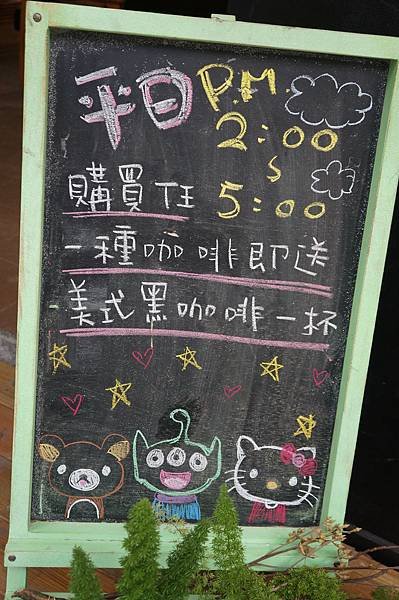 平日 P.M.
2:00
~
5:00
購買任
一種咖啡即送
美式黑咖啡一杯